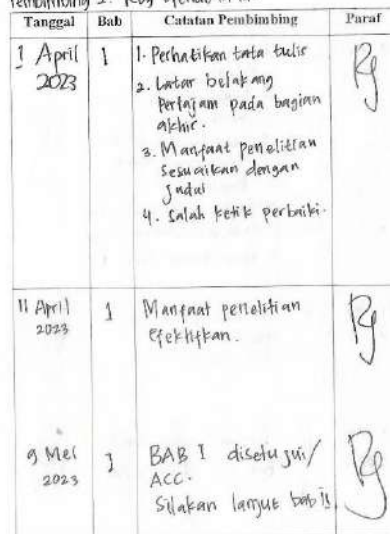 Pembimbing 2:
Tanggal Bab Catatan Pembimbing Paraf
1 April 2023 1 1. Perhatikan tata tulis
2. Latar belakang
Pertajam pada bagian
akhir.
3. Manfaat penelitian
Sesuaikan dengan
Judul
4. Salah ketik perbaiki.
11 April 2023 1 Manfaat penelitian
Efektifkan.
9 Mei 2023 1 BAB I disetujui/
ACC.
Silakan lanjut bab